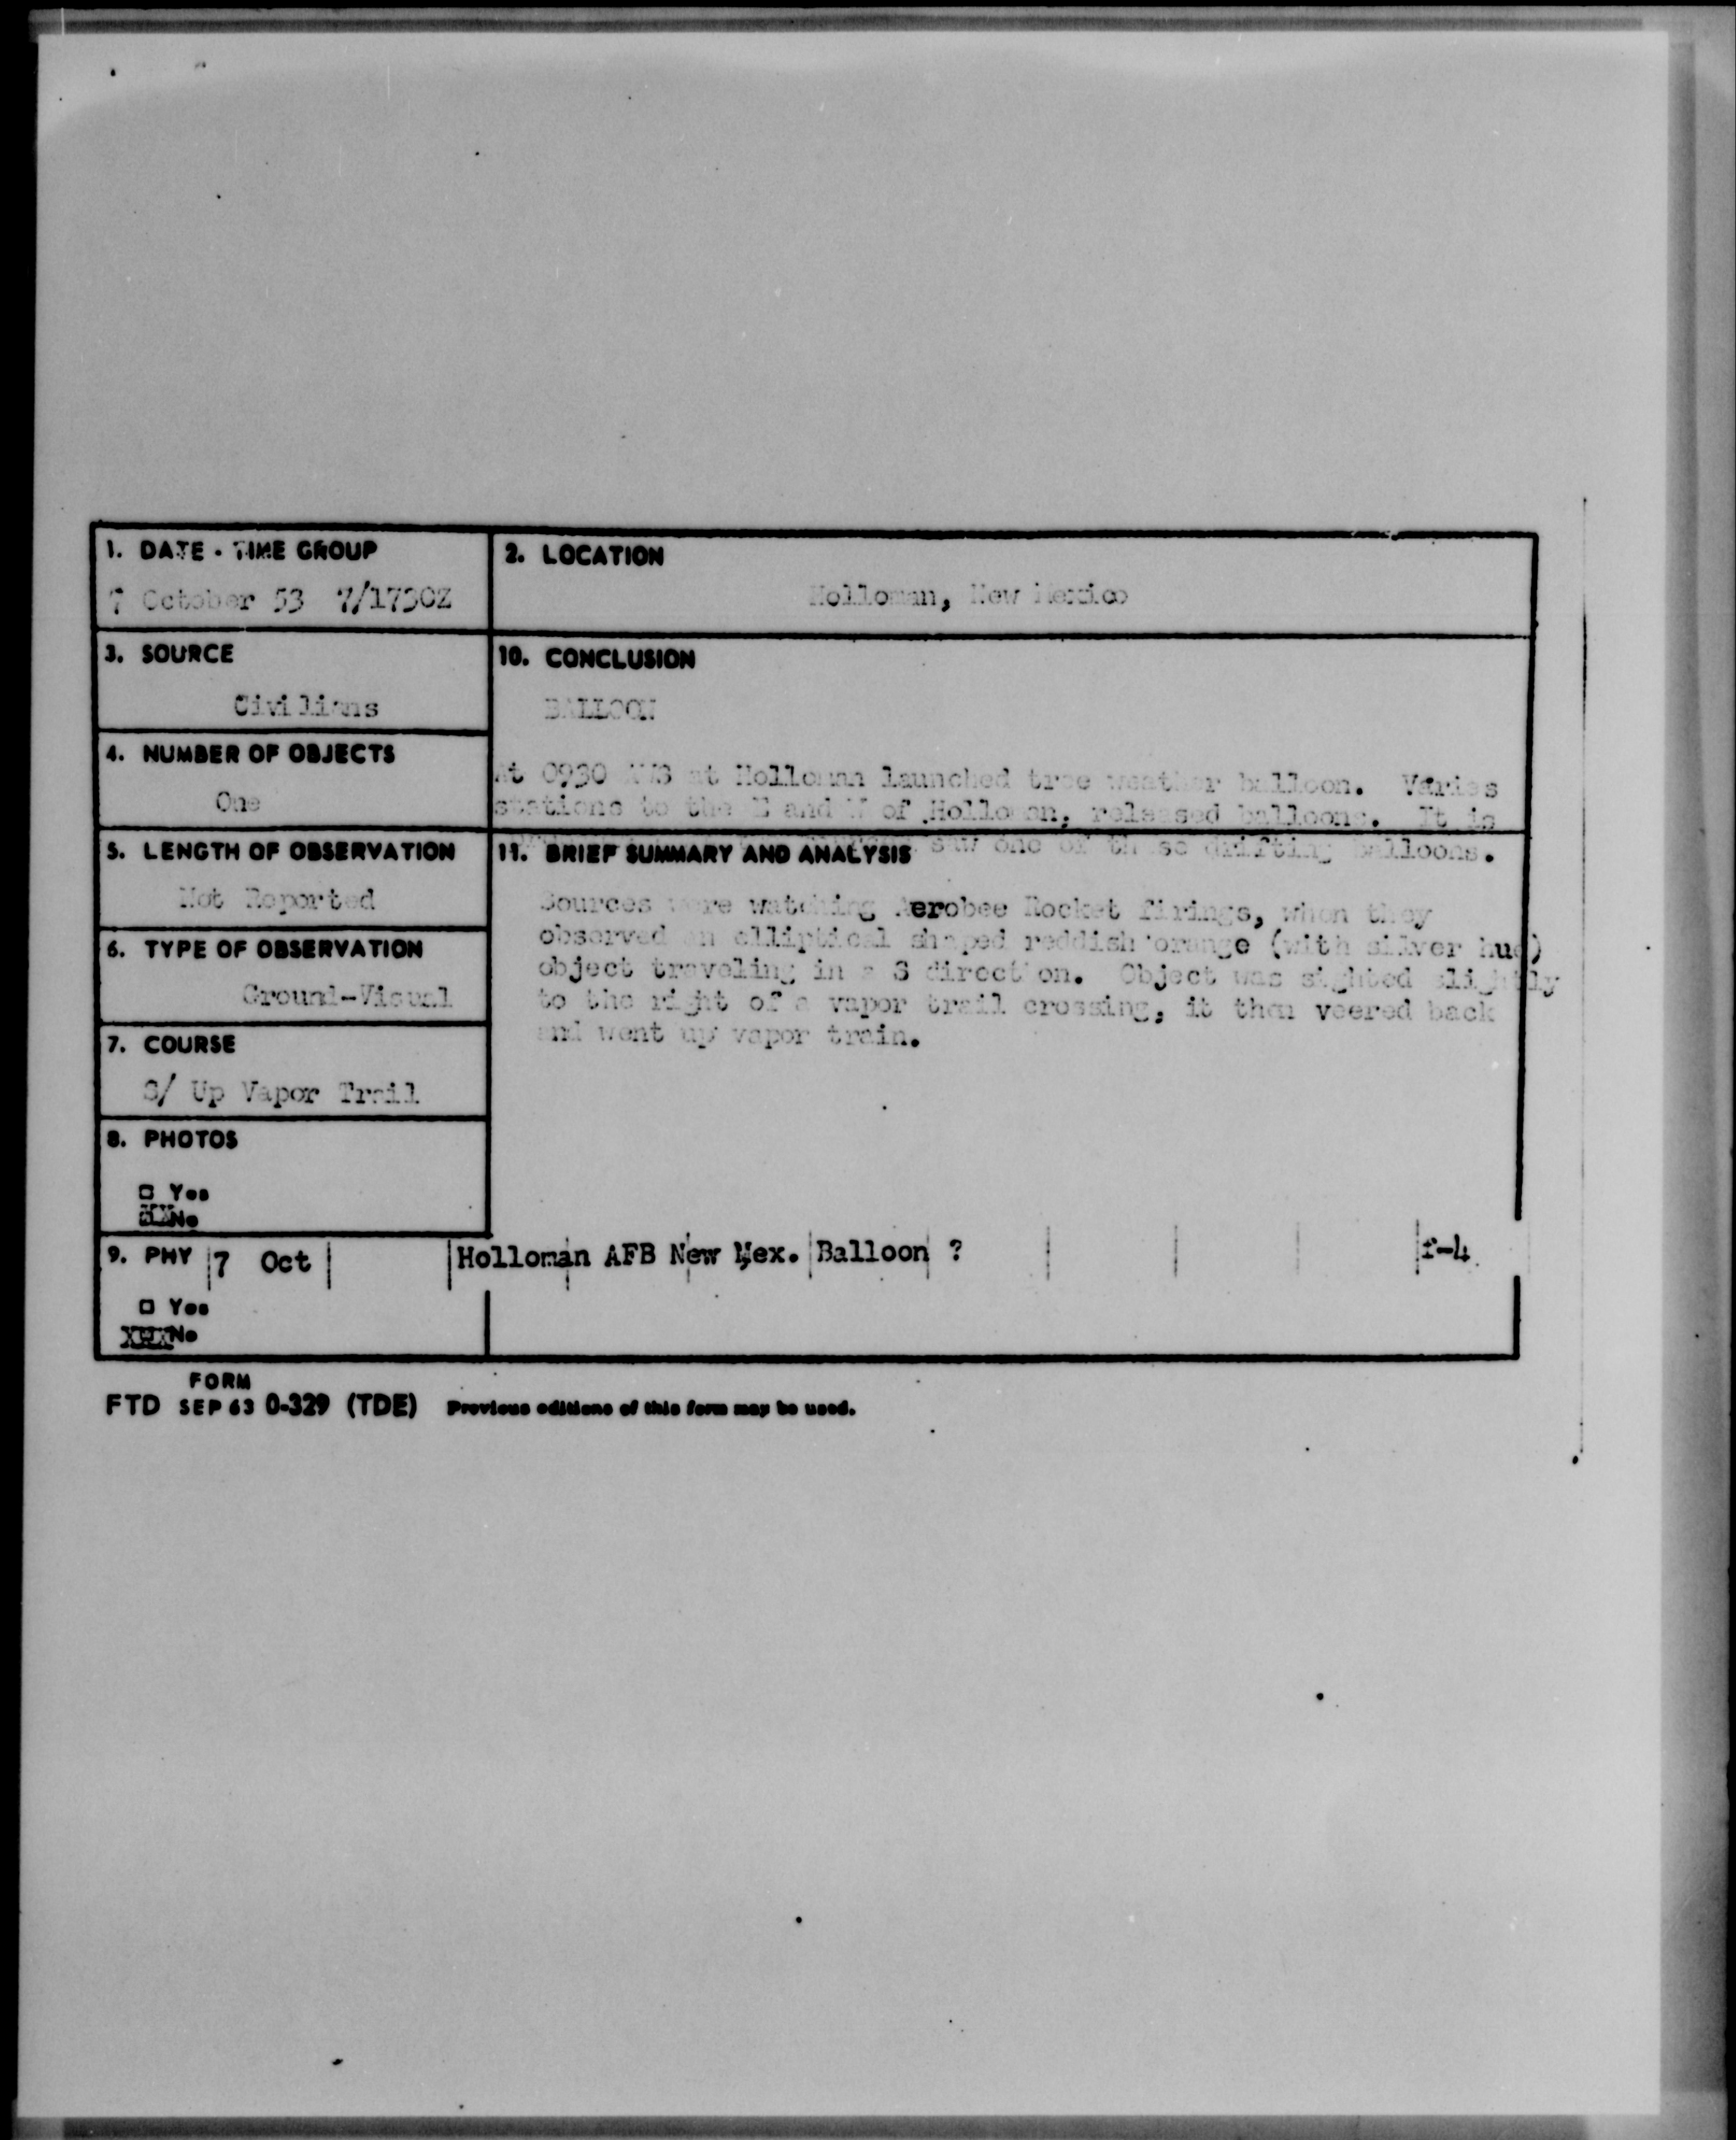 1. DATE - TIME GROUP
7 October 53 7/1730Z
2. LOCATION
Holloman, New Mexico
3. SOURCE
Civilians
10. CONCLUSION
BALLOON
At 0930 at Holloman launched weather balloon. Varies
stations to the and of Holloman, released balloons. It is
saw one of these drifting balloons.
4. NUMBER OF OBJECTS
One
5. LENGTH OF OBSERVATION
Not Reported
11. BRIEF SUMMARY AND ANALYSIS
Sources were watching Aerobee Rocket firings, when they
observed an elliptical shaped reddish orange (with silver hue)
object traveling in a S direction. Object was sighted slightly
to the right of a vapor trail crossing, it then veered back
and went up vapor train.
6. TYPE OF OBSERVATION
Ground-Visual
7. COURSE
S/ Up Vapor Trail
8. PHOTOS
□ Yes
XX No
9. PHY 7 Oct Holloman AFB New Mex. Balloon ? f-4
□ Yes
XXX No
FORM
FTD SEP 63 0-329 (TDE) Previous editions of this form may be used.